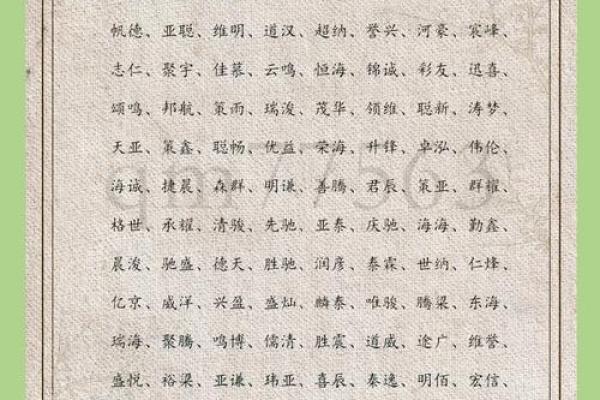 帆德、亚聪、维明、道汉、超纳、誉兴、河豪、宸峰、
志仁、聚宇、佳慕、云鸣、恒海、锦诚、彩友、迅喜、
颂鸣、邦航、策雨、瑞浚、茂华、领维、聪新、涛梦、
天亚、策鑫、聪畅、优益、荣海、升锋、卓泓、伟伦、
海诚、捷晨、森群、明谦、善腾、君辰、策亚、群耀、
格世、承耀、清骏、先驰、亚泰、庆驰、海海、勤鑫、
晨浚、驰盛、德天、胜驰、润彦、泰霖、世纳、仁烽、
亿京、威洋、兴盈、盛灿、麟泰、唯骏、腾梁、东海、
瑞海、聚腾、鸣博、儒清、胜宸、道威、途广、维誉、
盛悦、裕梁、亚谦、玮亚、喜辰、泰逸、明佰、宏信、
qm77503